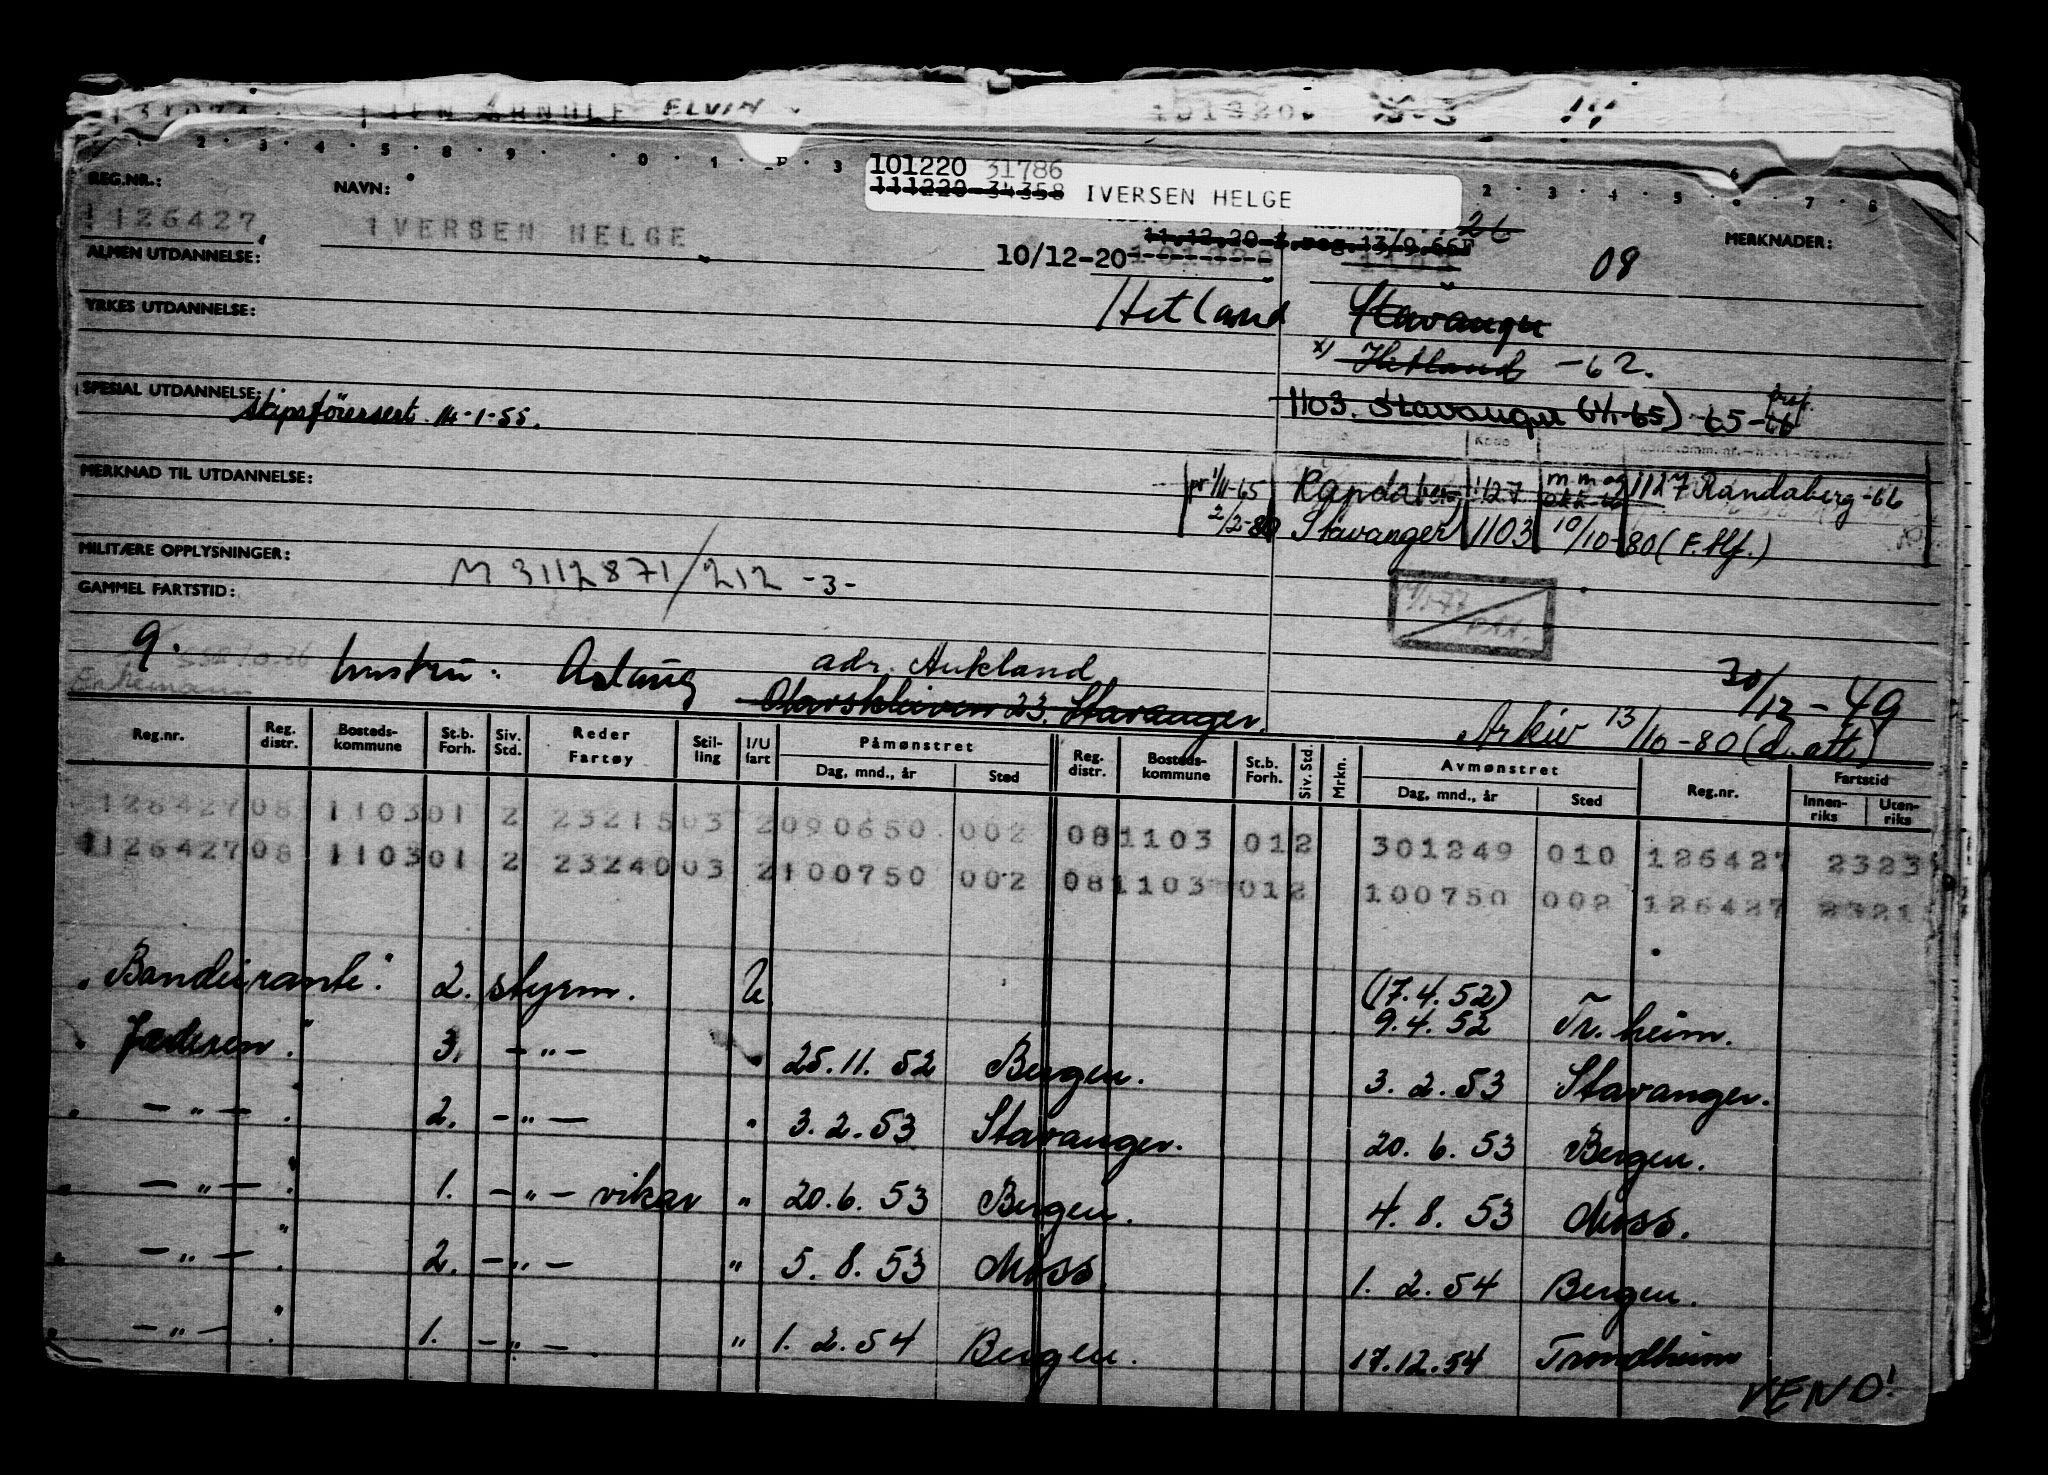 ELVIN
2 · 3 · 4 · 5 · 8 · 9 · 0 · 1 · 3
101220 31786
111220-34358 IVERSEN HELGE
REG.NR.:
NAVN:
MERKNADER:
1126427
IVERSEN HELGE
26
11.12.20
reg. 13/9.66
ALMEN UTDANNELSE:
10/12-20
1103
08
YRKES UTDANNELSE:
Hetland
Stavanger
x) Hetland -62.
SPESIAL UTDANNELSE:
skipsførersert. 14-1-55.
1103. Stavanger (1/1-65) -65-66
MERKNAD TIL UTDANNELSE:
pr 1/11-65 Randaberg 1127 m m og 1127 Randaberg -66
2/2-80 Stavanger 1103 10/10-80 (F. Hf.)
MILITÆRE OPPLYSNINGER:
M 3112871/212 -3-
GAMMEL FARTSTID:
1/1-77
g.
hustru: Aslaug
adr. Aukland
Olavskleiven 23. Stavanger.
30/12-49
Arkiv 13/10-80 (d. att)
Reg.nr. Reg. distr. Bosteds-kommune St.b. Forh. Siv. Std. Reder Fartøy Stil-ling I/U fart Påmønstret Dag, mnd., år Sted Reg. distr. Bosteds-kommune St.b. Forh. Siv. Std. Mrkn. Avmønstret Dag, mnd., år Sted Reg.nr. Fartstid Innen-riks Uten-riks
126427 08 1103 01 2 23215 03 2 090650 002 08 1103 01 2 301249 010 126427 2323
1126427 08 1103 01 2 23240 03 2 100750 002 08 1103 01 2 100750 002 126427 2321
"Bandeirante". 2. styrm. U (17.4.52)
9.4.52 Tr.heim.
" Jæderen". 3. -"- " 25.11.52 Bergen. 3.2.53 Stavanger.
" -"- ". 2. -"- " 3.2.53 Stavanger. 20.6.53 Bergen.
" -"- ". 1. -"- vikar " 20.6.53 Bergen. 4.8.53 Moss.
" -"- ". 2. -"- " 5.8.53 Moss. 1.2.54 Bergen.
" -"- ". 1. -"- " 1.2.54 Bergen. 17.12.54 Trondheim
VEND!